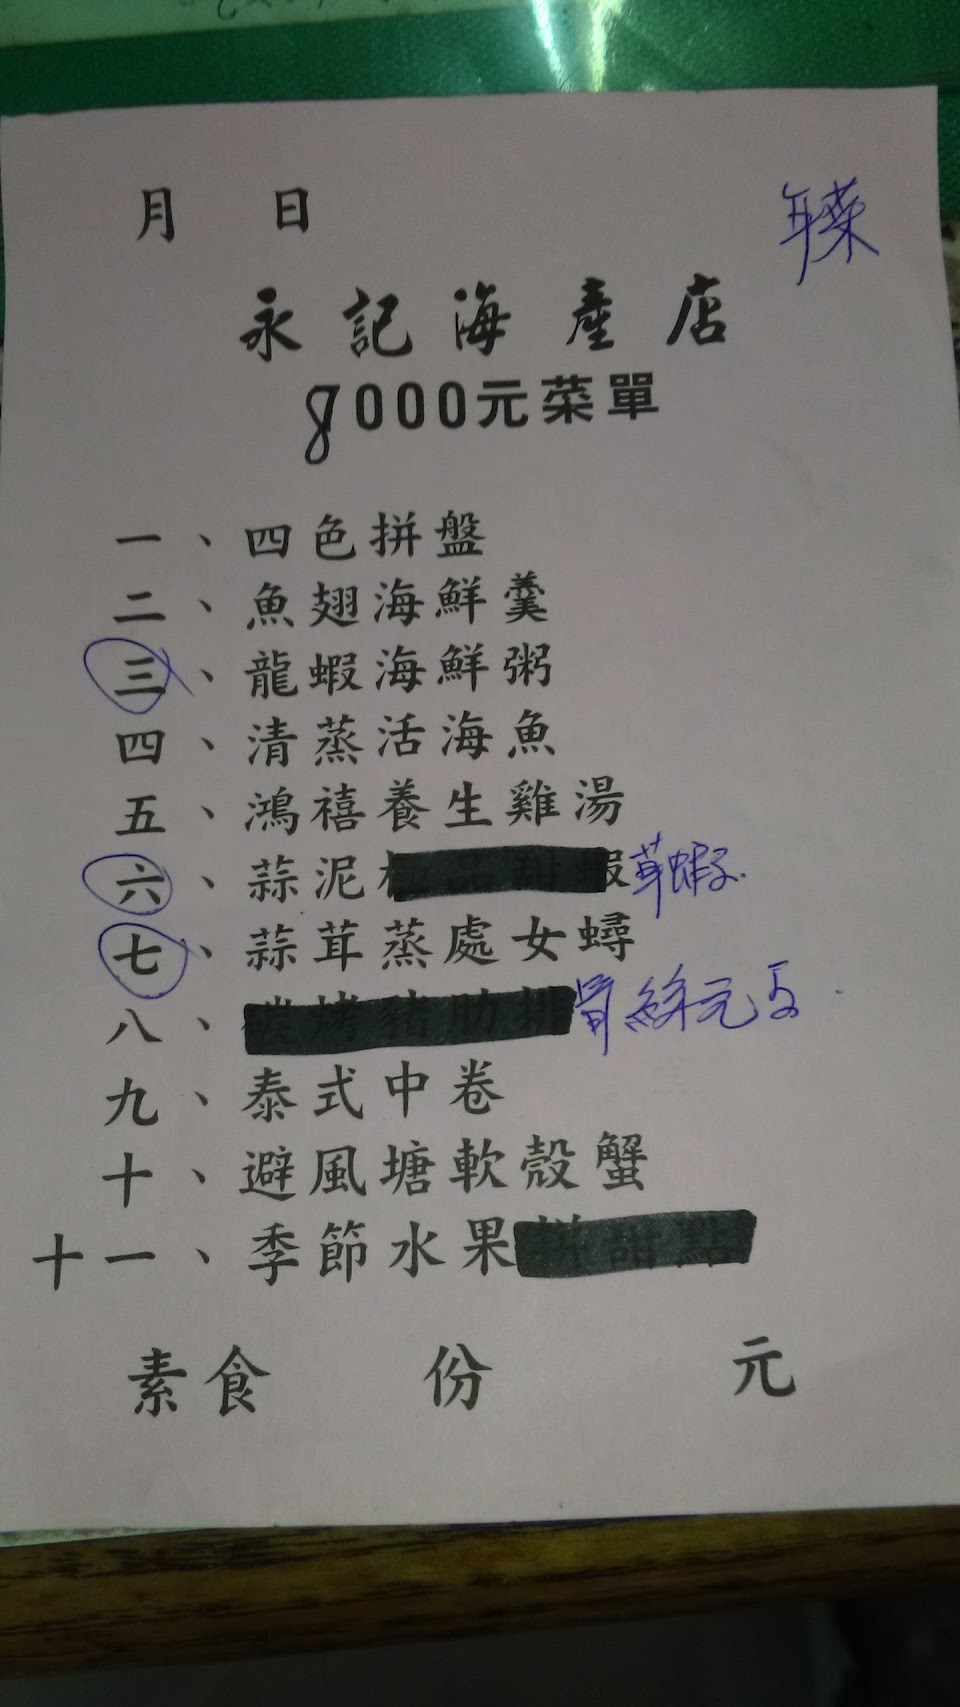 月 日 年菜
永記海產店
8000元菜單
一、四色拼盤
二、魚翅海鮮羹
三、龍蝦海鮮粥
四、清蒸活海魚
五、鴻禧養生雞湯
六、蒜泥 蝦 茸蝦子.
七、蒜茸蒸處女蟳
八、碳烤豬肋排 元
九、泰式中卷
十、避風塘軟殼蟹
十一、季節水果拼甜點
素食 份 元